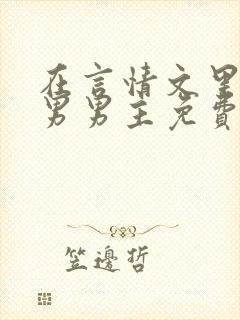 在言情文里
男男主免費
笠邊哲